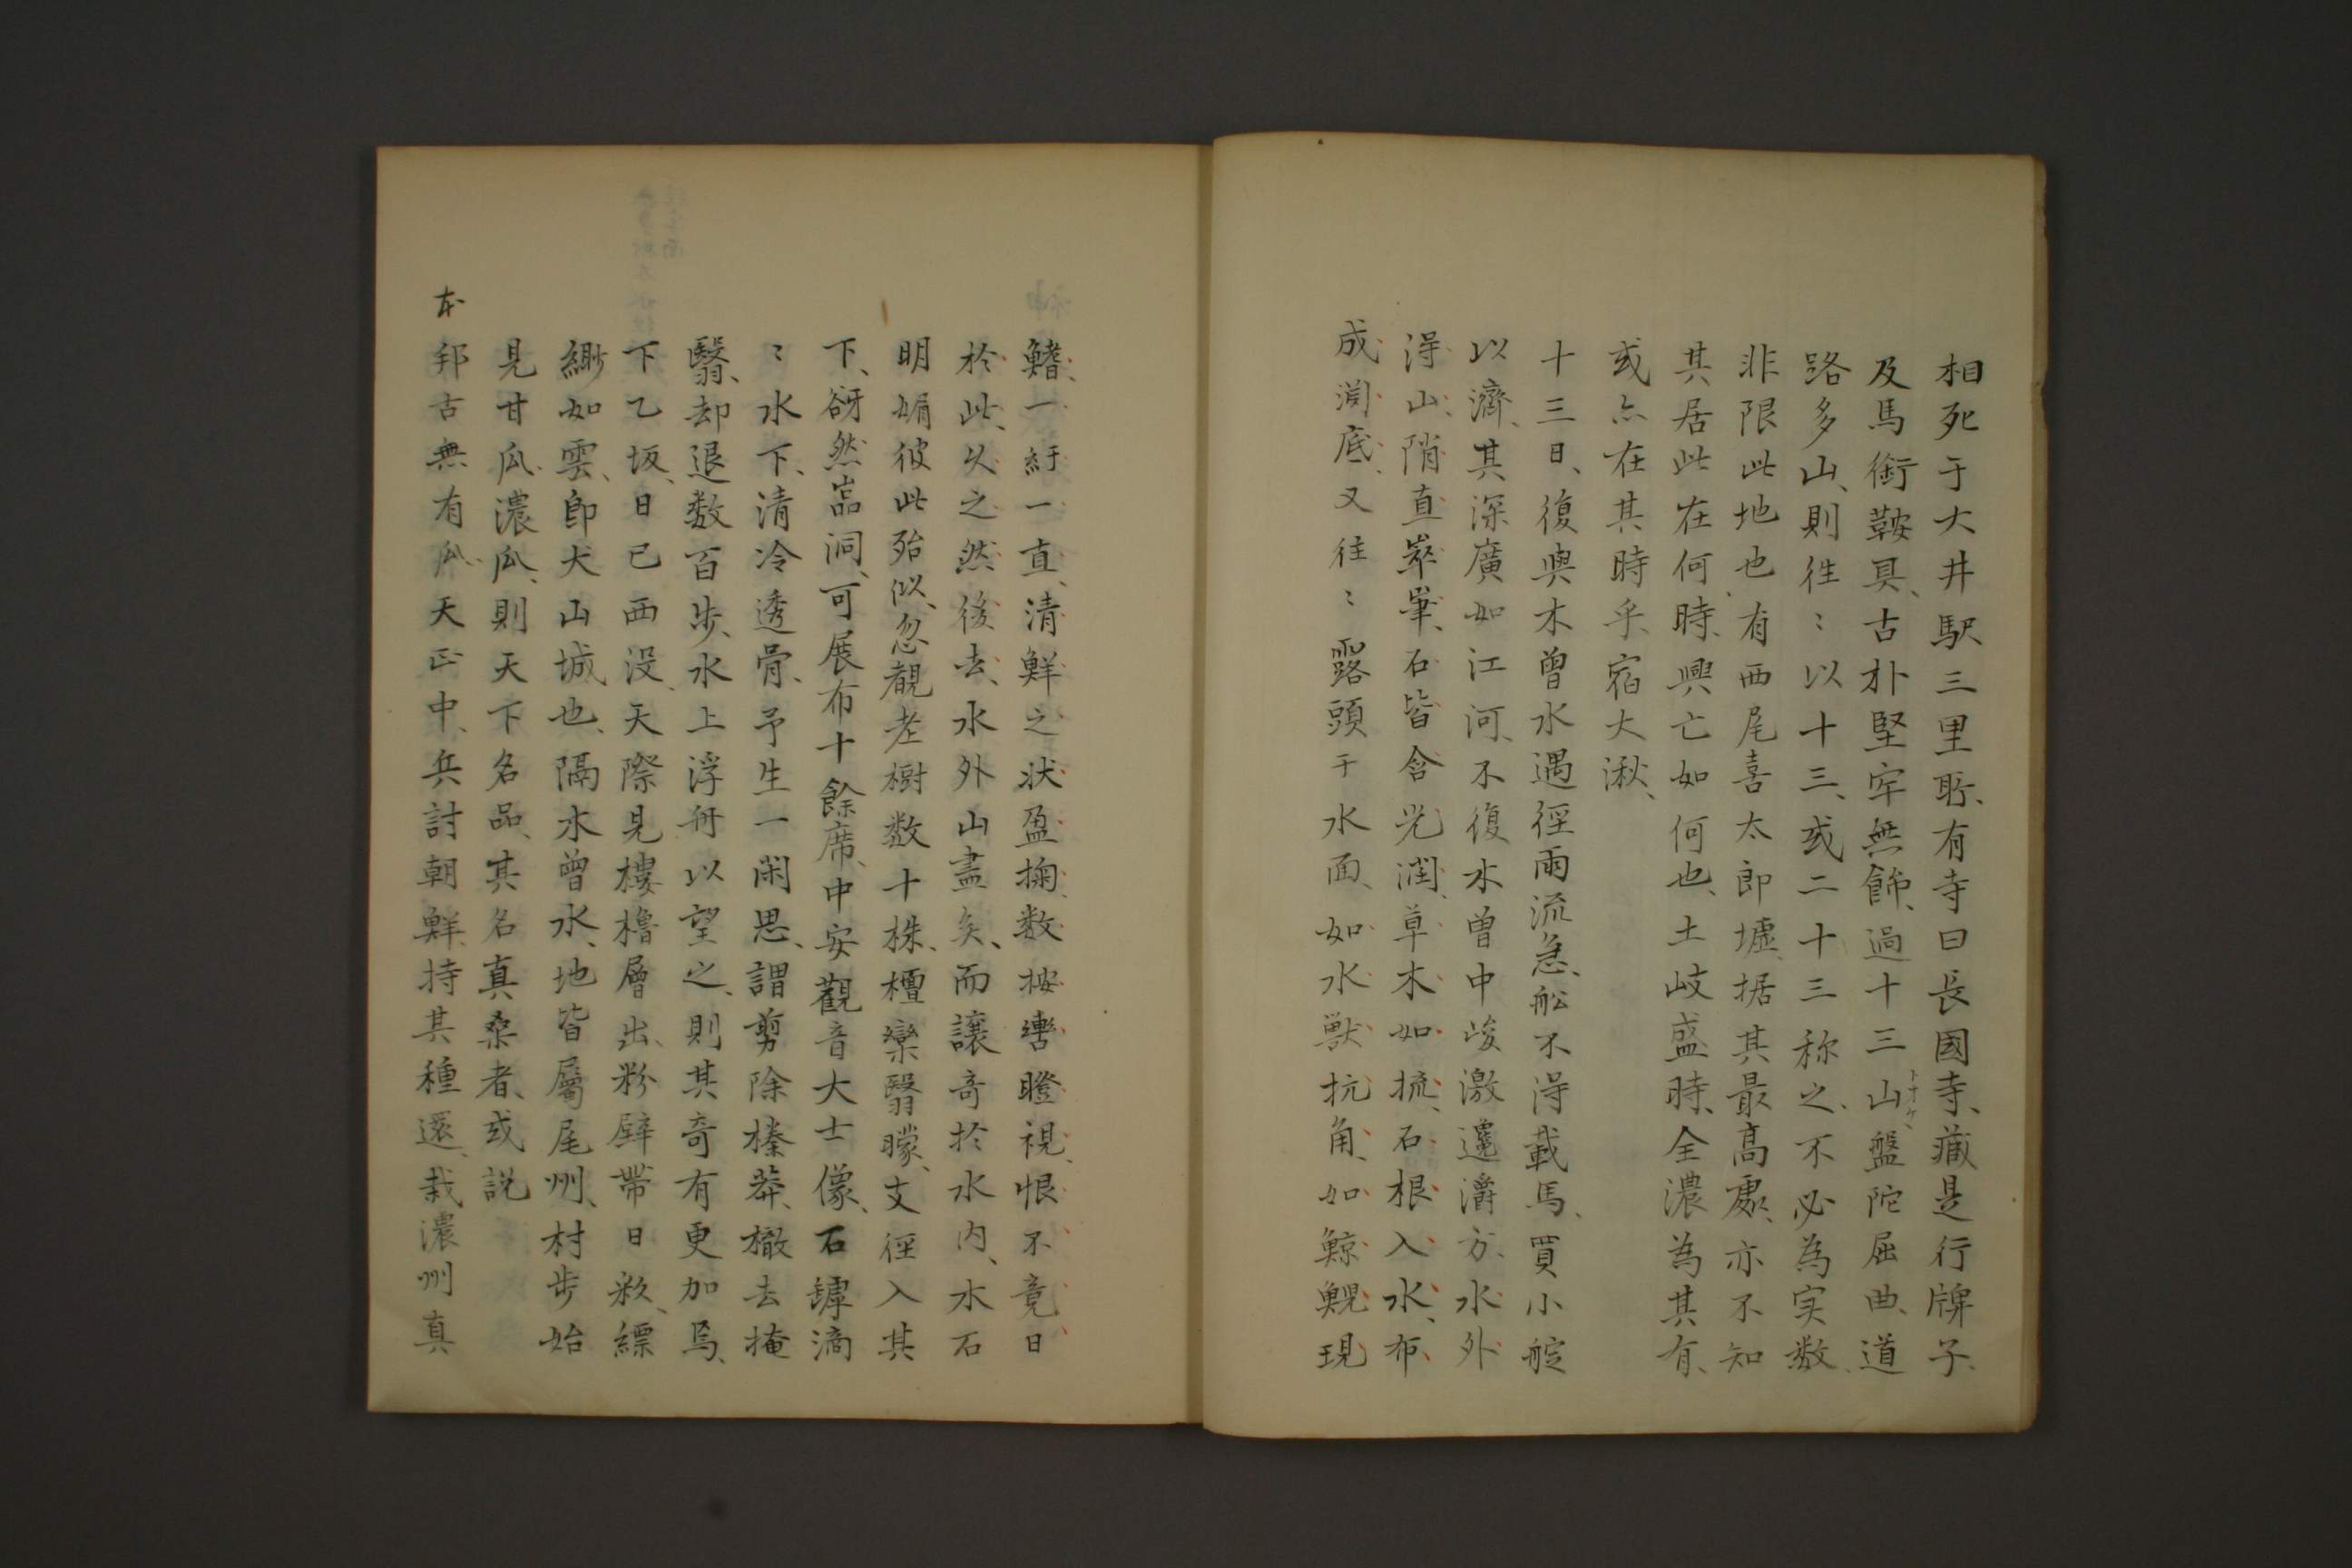 相死于大井駅三里所、有寺曰長國寺、蔵是行牌子、
及馬銜鞍具、古朴堅牢無飾、過十三山盤陀屈曲、道
トオケ
路多山、則徃〻以十三、或二十三称之、不必為实数、
非限此地也、有西尾喜太郎墟、据其最高處、亦不知
其居此在何時、興亡如何也、土岐盛時、全濃為其有、
或亦在其時乎、宿大湫、
十三日、復與木曾水遇徑兩流急、舩不得載馬、買小舩
以濟、其深廣如江河、不復木曾中峻激邊瀯方、水外
得山、隋直崒崋、石皆含光潤、草木如梳、石根入水、布
成渕底、又往〻露頭于水面、如水獣抗角、如鯨鯢現
鰭、一紆一直、清鮮之状盈掬、数按轡瞪視、恨不竟日
於此、久之然後去、水外山盡矣、而譲奇於水内、水石
明媚彼此殆似、忽覩老樹数十株、檀欒翳朦、支徑入其
下、谺然嵓洞、可展布十餘席、中安觀音大士像、石罅滴
〻水下、清冷透骨、予生一閑思、謂剪除榛莽、撤去掩
翳、却退数百歩、水上浮舟以望之、則其奇有更加焉、
下乙坂、日已西没、天際見樓櫓層出、粉壁帶日彩、縹
緲如雲、即犬山城也、隔木曾水、地皆屬尾州、村步始
見甘瓜、濃瓜、則天下名品、其名真桑者、或説
本邦古無有瓜、天正中、兵討朝鮮、持其種還、栽濃州真